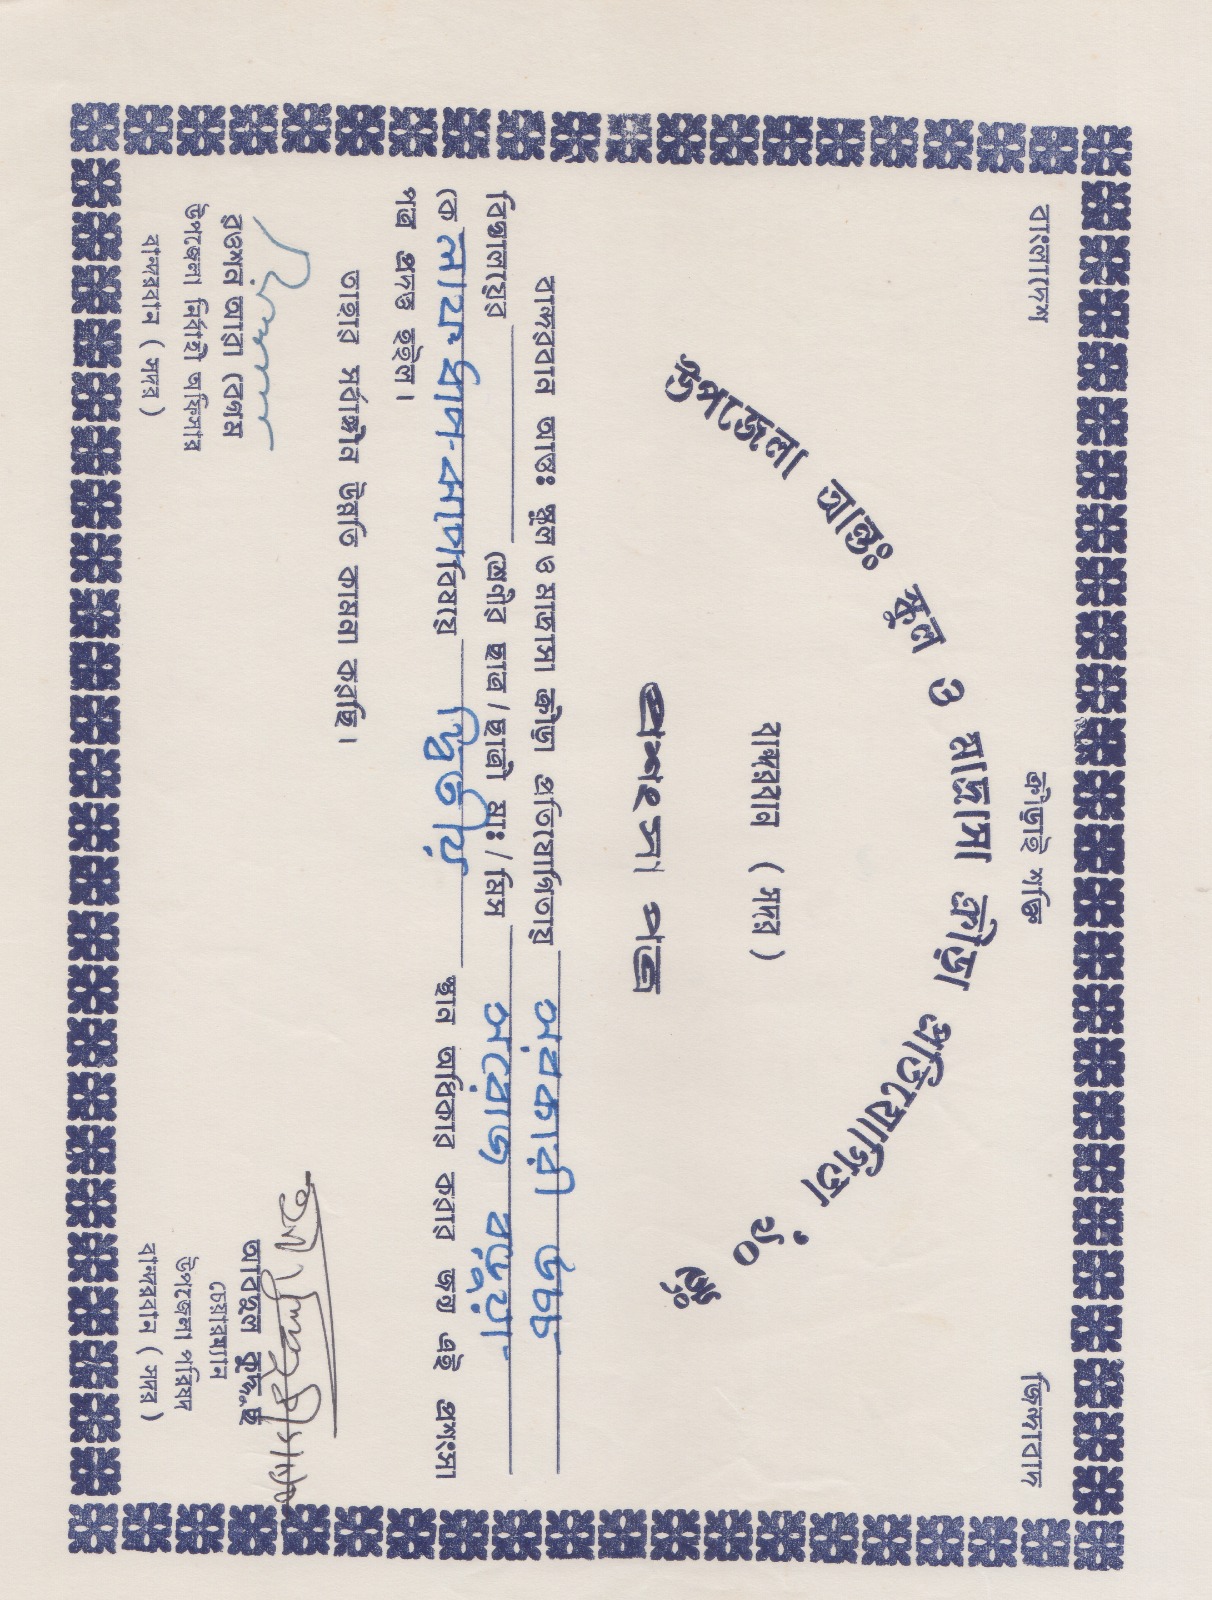 বাংলাদেশ ক্রীড়াই শক্তি জিন্দাবাদ
উপজেলা আন্তঃ স্কুল ও মাদ্রাসা ক্রীড়া প্রতিযোগিতা '৯০ ইং
বান্দরবান ( সদর )
প্রশংসা পত্র
বান্দরবান আন্তঃ স্কুল ও মাদ্রাসা ক্রীড়া প্রতিযোগিতায় সরকারী উচ্চ
বিদ্যালয়ের শ্রেণীর ছাত্র / ছাত্রী মাঃ / মিস সরোজ বড়ুয়া
কে লাফ ধাপ-ঝাপ বিষয়ে দ্বিতীয় স্থান অধিকার করার জন্য এই প্রশংসা
পত্র প্রদত্ত হইল।
তাহার সর্বাঙ্গীন উন্নতি কামনা করছি।
রওশন আরা বেগম
উপজেলা নির্বাহী অফিসার
বান্দরবান ( সদর )
আবদুল কুদ্দুছ
চেয়ারম্যান
উপজেলা পরিষদ
বান্দরবান ( সদর )